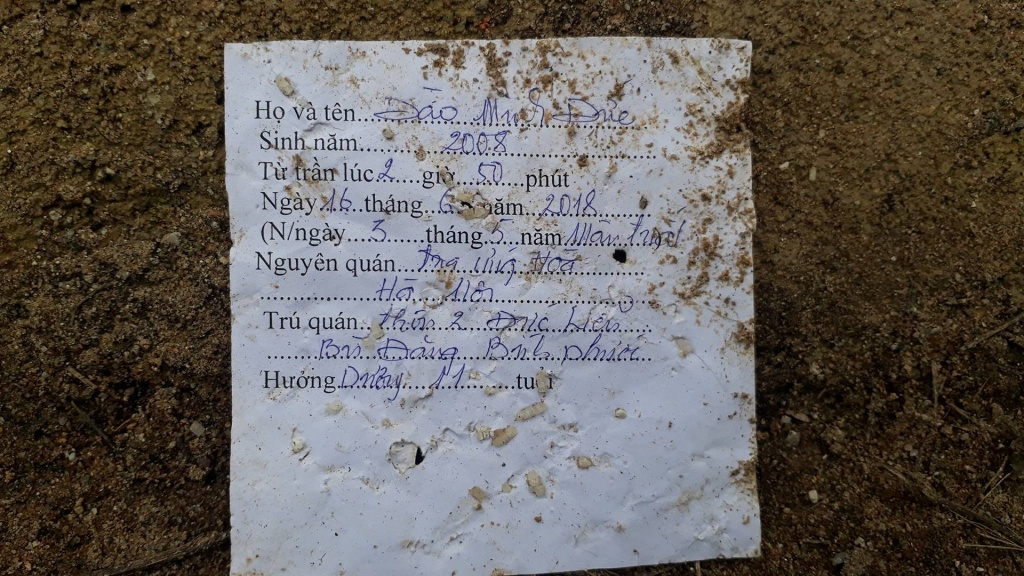 Họ và tên...Đào Minh Đức
Sinh năm............2008......................
Từ trần lúc 2.....giờ...50....phút
Ngày 16..tháng..6..năm...2018........
(N/ngày....3......tháng.5..năm Mậu tuất
Nguyên quán...Hoà..........
................Hà....................
Trú quán..thôn 2 Đức Liễu....
.......Bù Đăng Bình phước...
Hưởng Dương....11.......tuổi